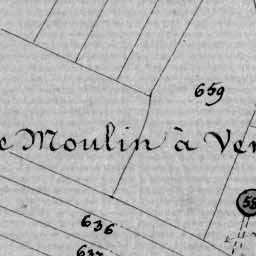 659
e Moulin à Ven
636
637
58